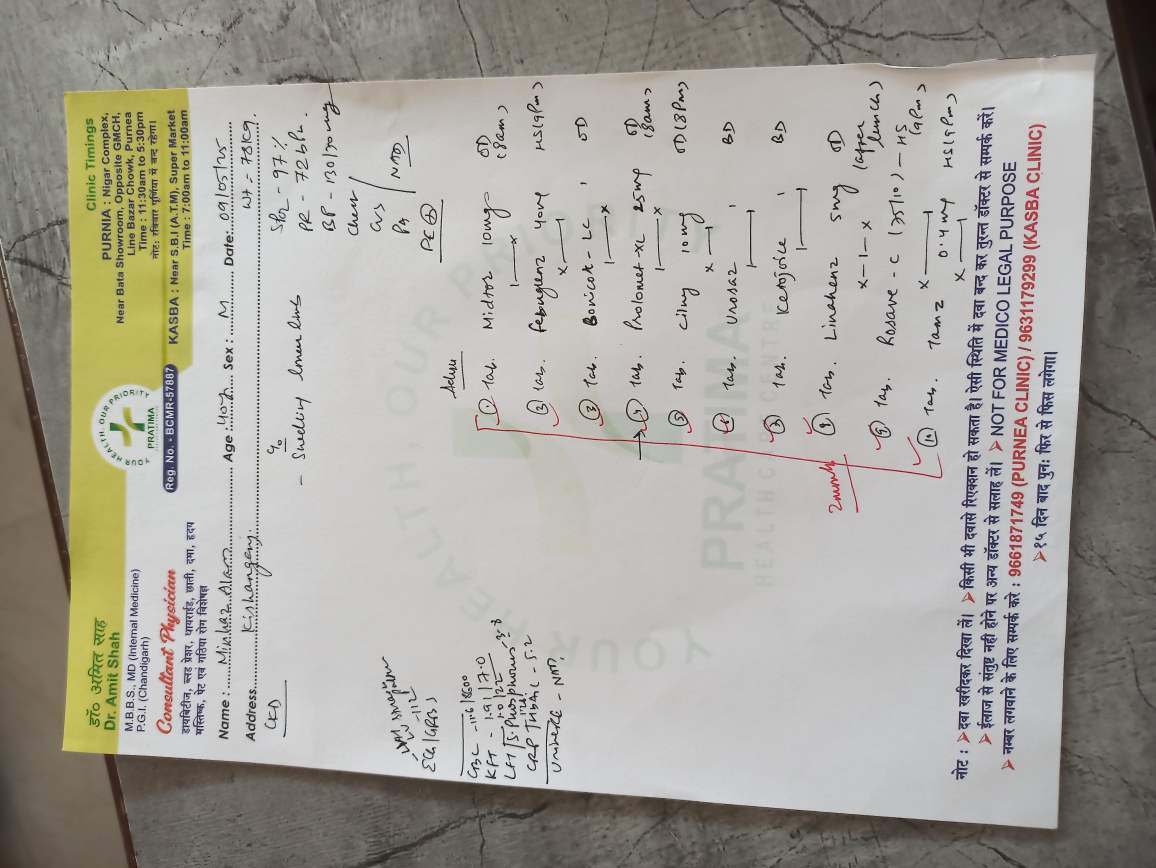 डॉ० अमित साह
Dr. Amit Shah
M.B.B.S., MD (Internal Medicine)
P.G.I. (Chandigarh)
Consultant Physician
डायबिटीज, ब्लड प्रेशर, थायराईड, छाती, दमा, ह्रदय
मस्तिष्क, पेट एवं गठिया रोग विशेषज्ञ
YOUR HEALTH, OUR PRIORITY
PRATIMA
Reg. No.. - BCMR-57887
Clinic Timings
PURNIA : Nigar Complex,
Near Bata Showroom, Opposite GMCH,
Line Bazar Chowk, Purnea
Time : 11:30am to 5:30pm
नोट: रविवार पूर्णिया में बन्द रहेगा।
KASBA : Near S.B.I (A.T.M), Super Market
Time : 7:00am to 11:00am
Name : Minhaz Alam Age : 40y Sex : M Date: 09/05/25
Address Kishanganj. WT - 78kg.
CKD
c/o
- Swelling lower limb
SPO2 - 97%
PR - 72 bpm.
BP - 130/70mmHg
Chest
CVS
P/A NAD
PE (+)
ECG (RBS)
CBC - 11.6/8600
KFT - 1.91/7.0
LFT
S. Phosphorus - 3.8
CRP HbA1c - 5.2
Urine RE - NAD.
Advice
(1) Tab. Midtor 10mg OD (8am)
(2) Tab. Febuglenz 40mg HS (9pm)
(3) Tab. Bonicot - LC 1 OD
(4) Tab. Prolomet-XL 25mg OD (8am)
(5) Tab. Cilny 10mg OD (8pm)
(6) Tab. Urosaz 1 BD
(7) Tab. Ketojoice 1 BD
(8) Tab. Linahenz 5mg OD (after lunch)
x - 1 - x
(9) Tab. Rosave - C (75/10) - HS (9pm)
(10) Tab. Tamz 0.4mg HS (9pm)
2 month
YOUR HEALTH OUR PRIORITY
PRATIMA
HEALTH CARE CENTRE
नोट : ➤ दवा खरीदकर दिखा लें। ➤ किसी भी दवासे रिएक्शन हो सकता है। ऐसी स्थिति में दवा बन्द कर तुरन्त डॉक्टर से सम्पर्क करें।
➤ ईलाज से संतुष्ट नही होने पर अन्य डॉक्टर से सलाह लें। ➤ NOT FOR MEDICO LEGAL PURPOSE
➤ नम्बर लगवाने के लिए सम्पर्क करे : 9661871749 (PURNEA CLINIC) / 9631179299 (KASBA CLINIC)
➤ १५ दिन बाद पुनः फिर से फिस लगेगा।